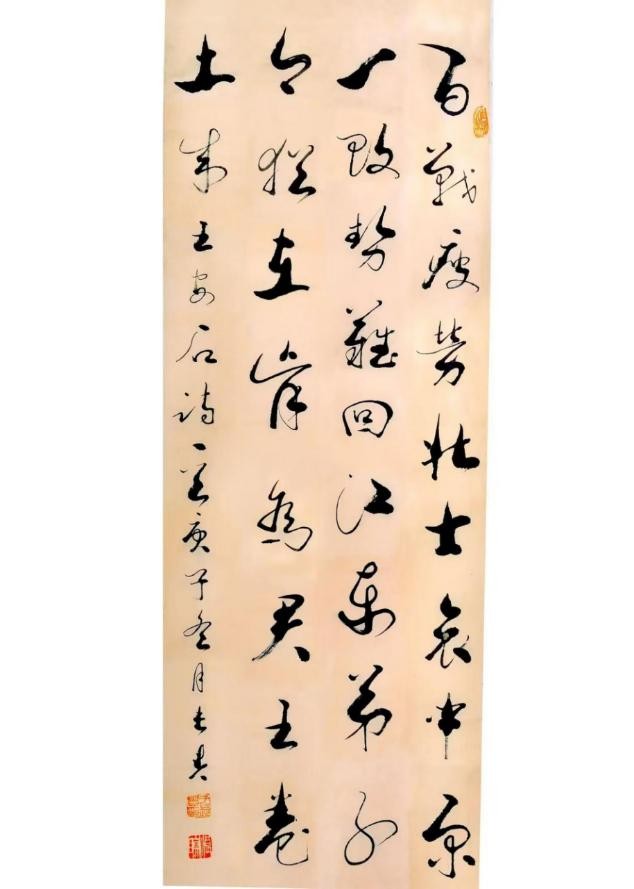 百戰疲勞壯士哀中原
一敗勢難回江東弟子
今猶在肯為君王卷
土来王安石詩一首庚子冬月